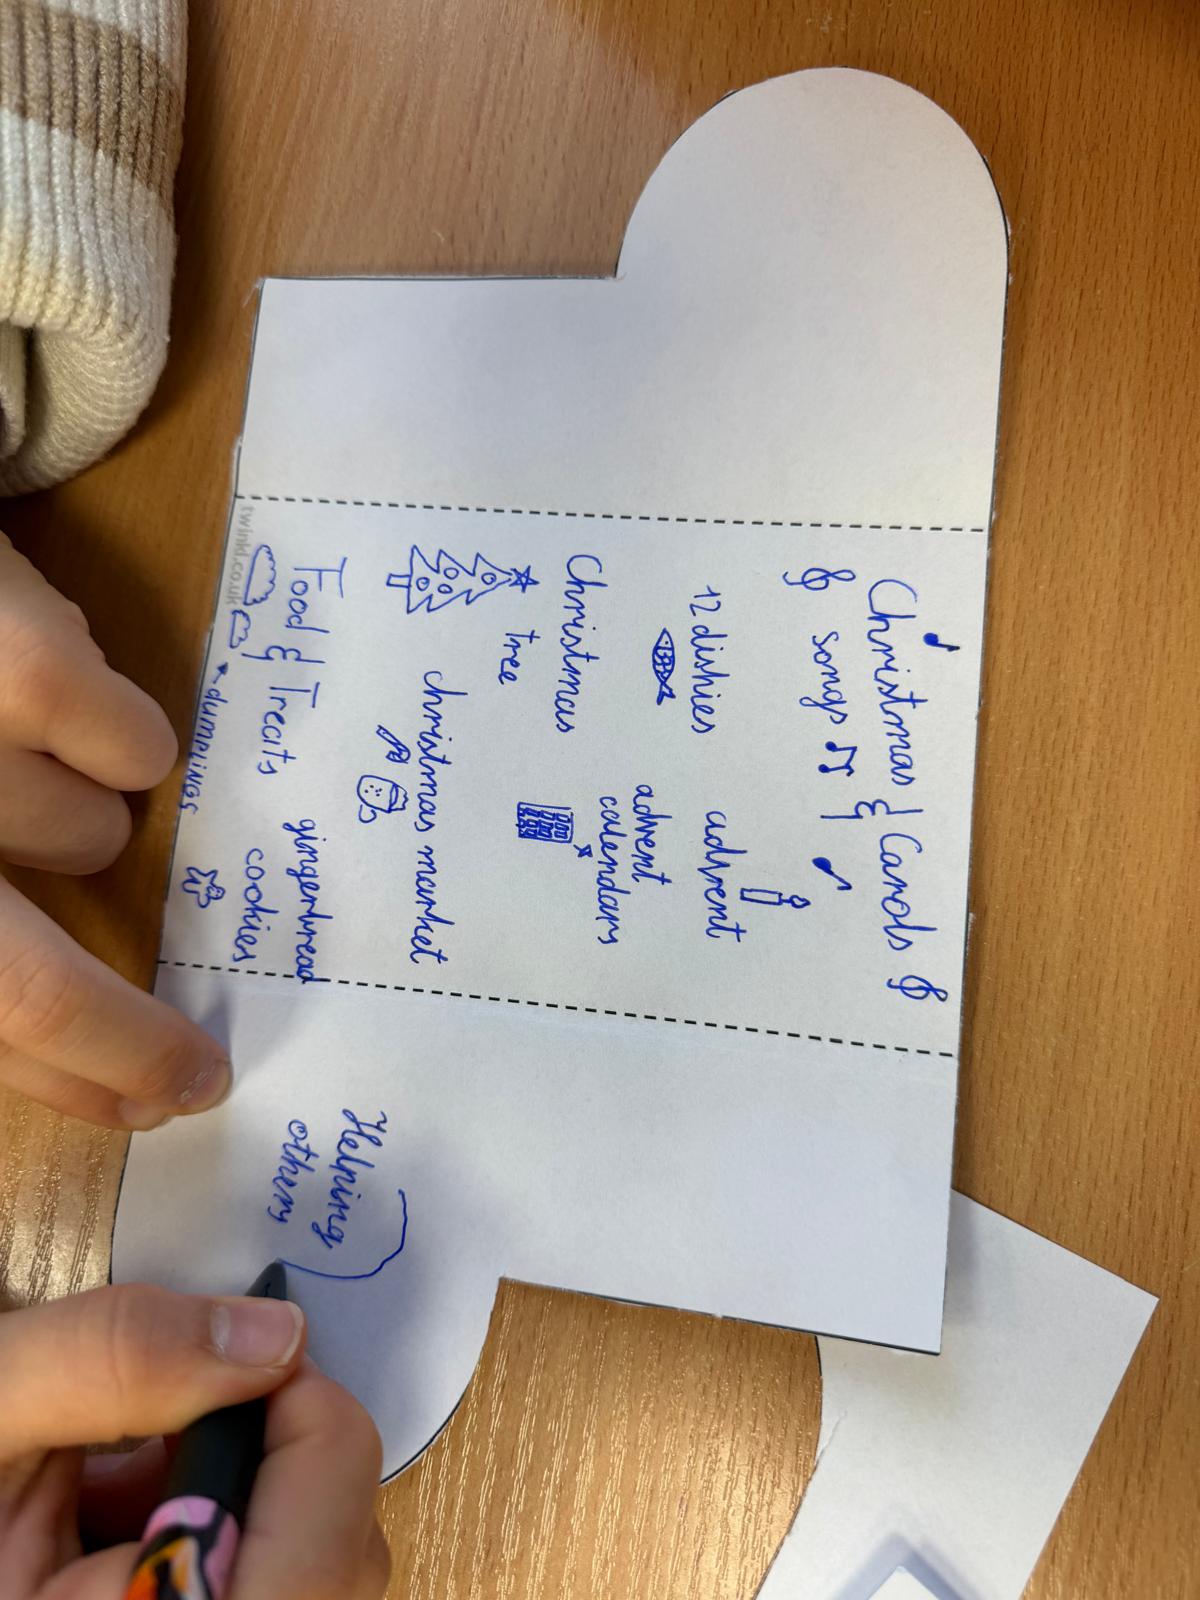 Christmas & Carols
songs
12 dishies
advent
Christmas
tree
advent
calendars
christmas market
Food & Treats
gingerbread
cookies
dumplings
twinkl.co.uk
Helping
others